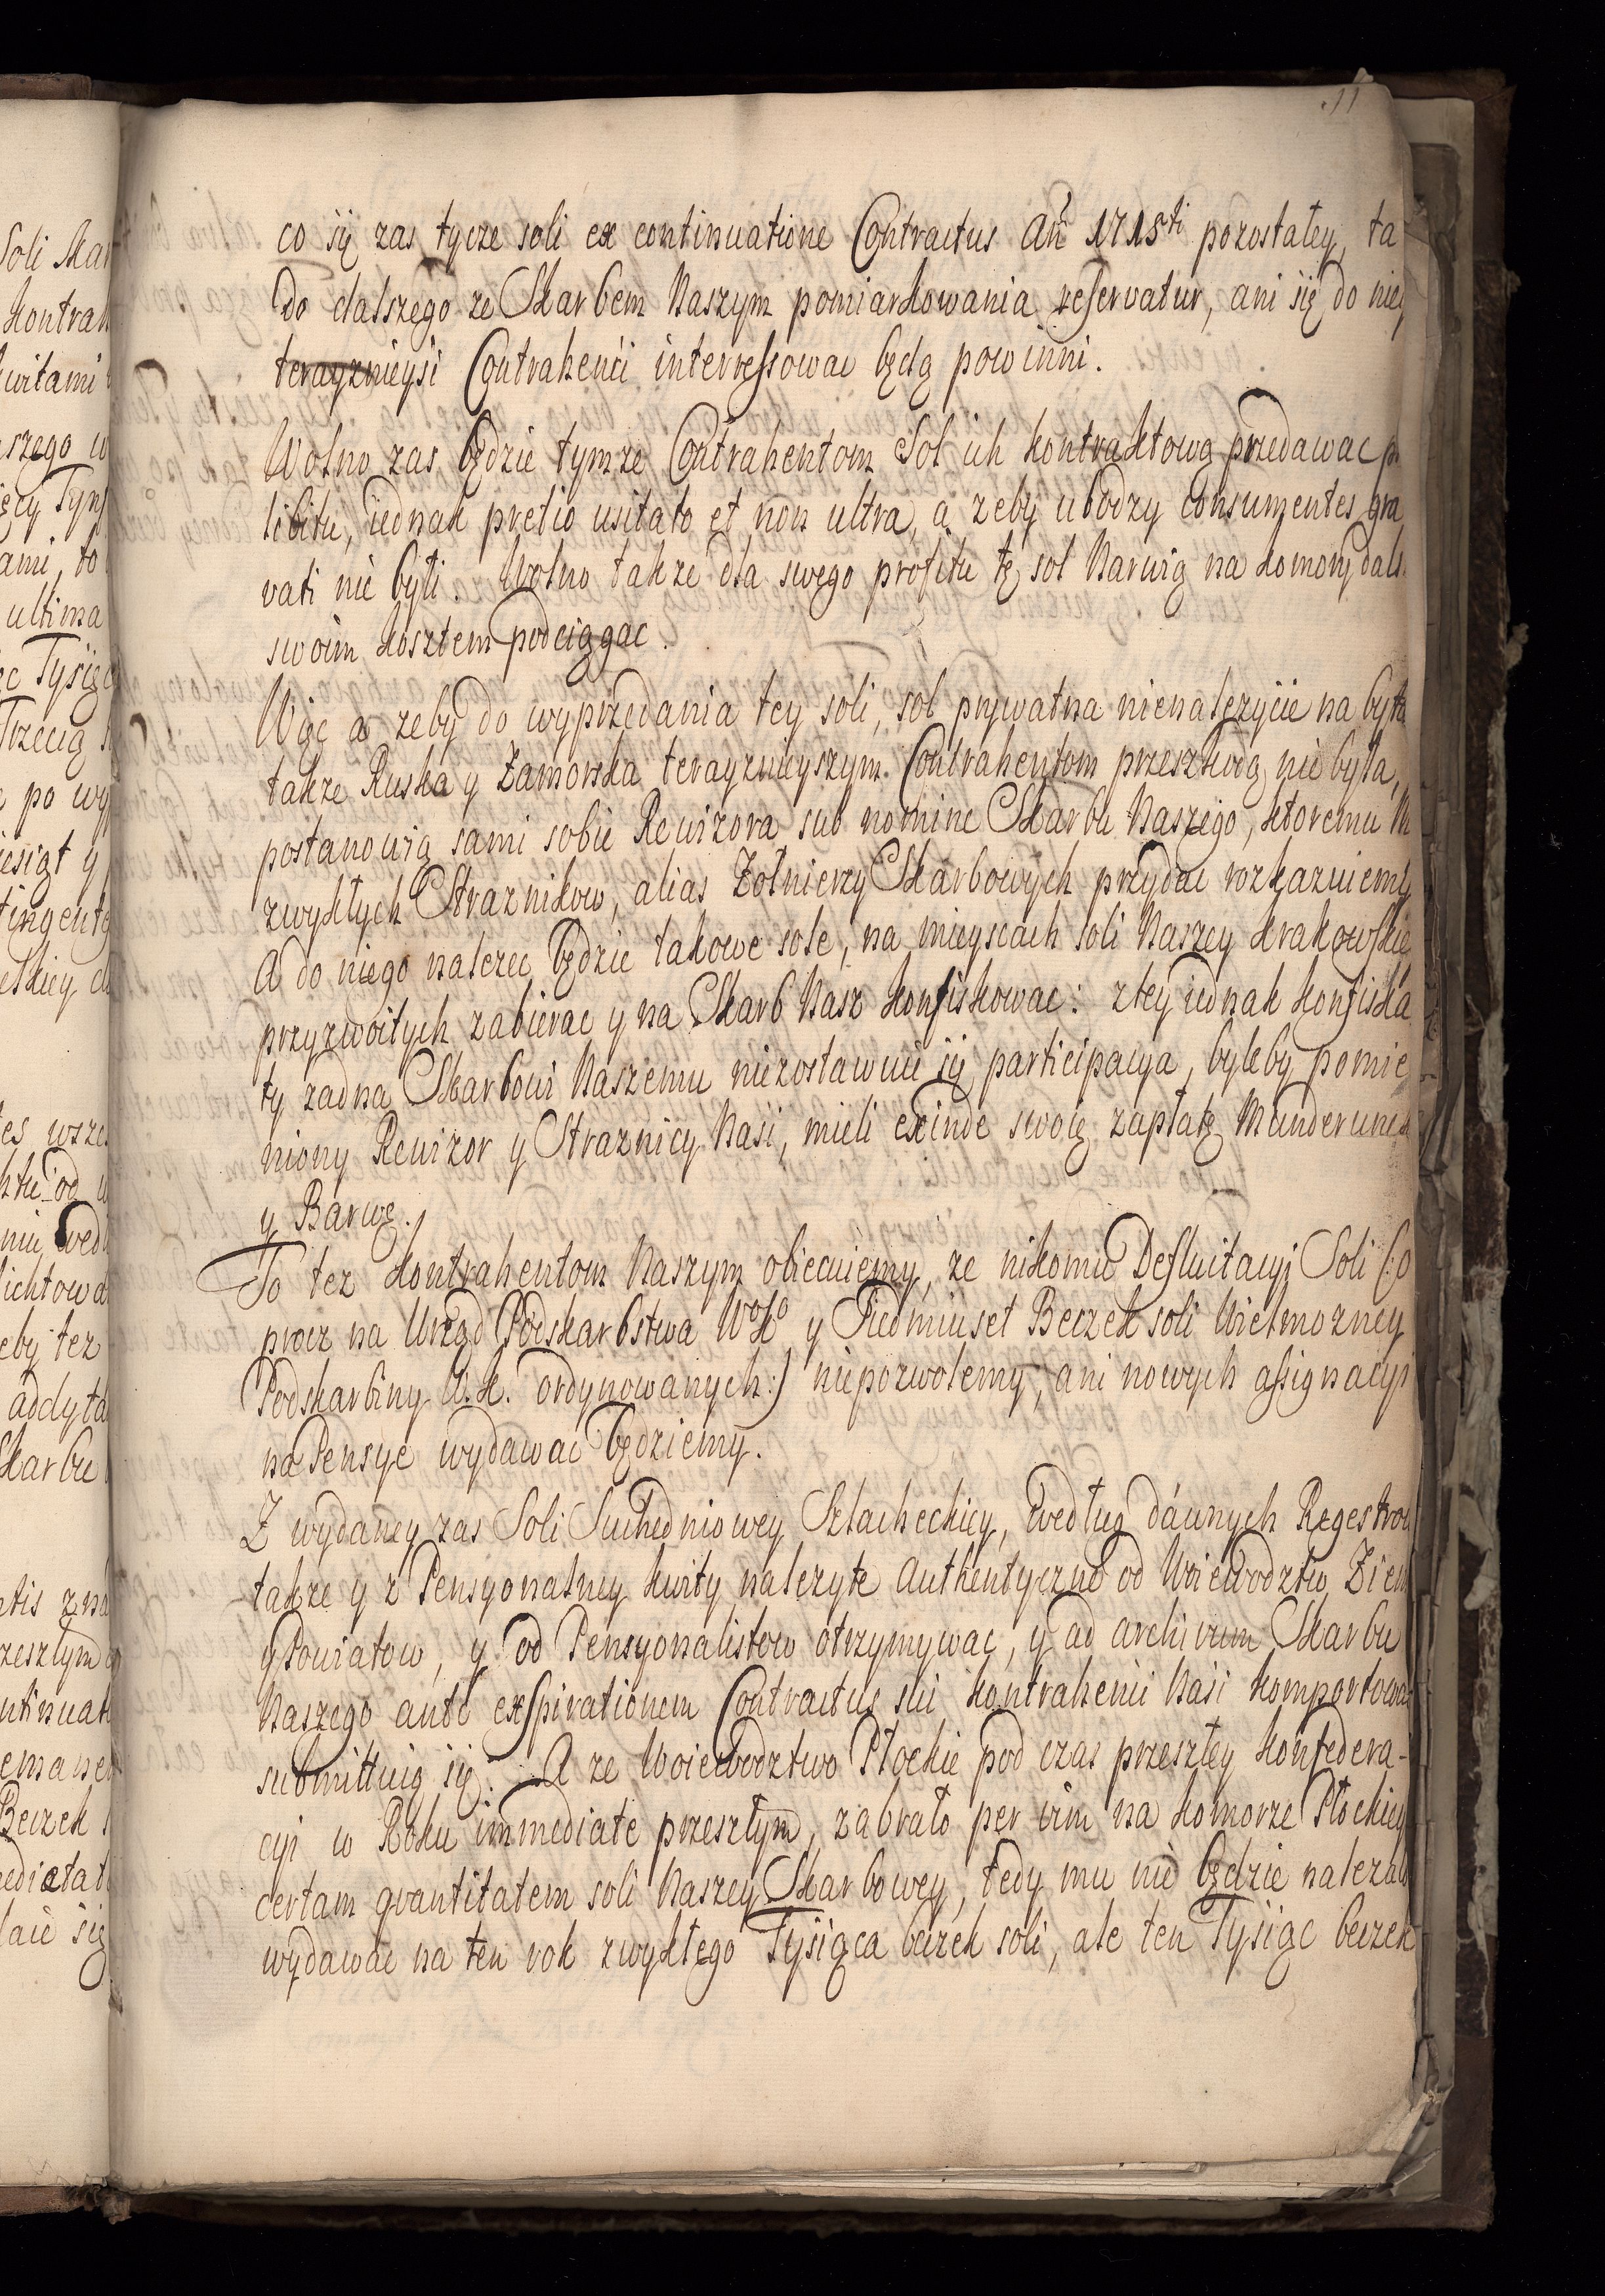 11
co się zas tycze soli ex continuatione Contractus Añ 1715ti pozostałey, ta
do dalszego ze Skarbem Naszym pomiarkowania reservatur, ani się do niey
terayznieysi Contrahenci interressowac będą powinni.
Wolno zas będzie tymze Contrahentom Sol ich kontraktową przedawac p
libitu, iednak pretio usitato et non ultra, a zeby ubodzy consumentes gra
vati nie byli. Wolno takze dla swego profitu tę sol Narwią na komory dals
swoim kosztem podciągac.
Więc a zeby do wyprzedania tey soli, sol prywatna nienalezycie nabyta
takze Ruska y Zamorska terayznieyszym Contrahentom przeszkodą nie była,
postanowią sami sobie Rewizora sub nomine Skarbu Naszego, ktoremu
zwykłych Straznikow, alias Zołnierzy Skarbowych przydac rozkazuiemy
A do niego nalezec będzie takowe sole, na mieyscach soli Naszey krakowskie
przyzwoitych zabierac y na Skarb Nasz konfiskowac: z tey iednak konfiska
ty zadna Skarbowi Naszemu niezostawuie się participacya, byleby pomie
niony Rewizor y Straznicy Nasi, mieli exinde swoię zapłatę Munderunek
y Barwę.
To tez kontrahentom Naszym obiecuiemy, ze nikomu Defluitacyi Soli (: o
procz na Urząd Podskarbstwa WoKo y Siedmiuset Beczek soli Wielmozney
Podskarbiny W.K. ordynowanych:) niepozwolemy, ani nowych assignacyi
na Pensye wydawac będziemy.
Z wydaney zas Soli Suchedniowey Szlacheckiey, według dawnych Regestrow
takze y z Pensyonalney kwity nalezyte Authentyczne od Woiewodztw, Ziem
y Powiatow, y od Pensyonalistow otrzymywac, y ad archivum Skarbu
Naszego ante exspirationem Contractus sui kontrahenci Nasi komportowac
submittuią się. A ze Woiewodztwo Płockie pod czas przeszłey konfedera-
cyi w Roku immediate przeszłym, zabrało per vim na komorze Płockiey
certam qvantitatem soli Naszey Skarbowey, tedy mu nie będzie nalezało
wydawac na ten rok zwykłego Tysiąca beczek soli, ale ten Tysiąc beczek